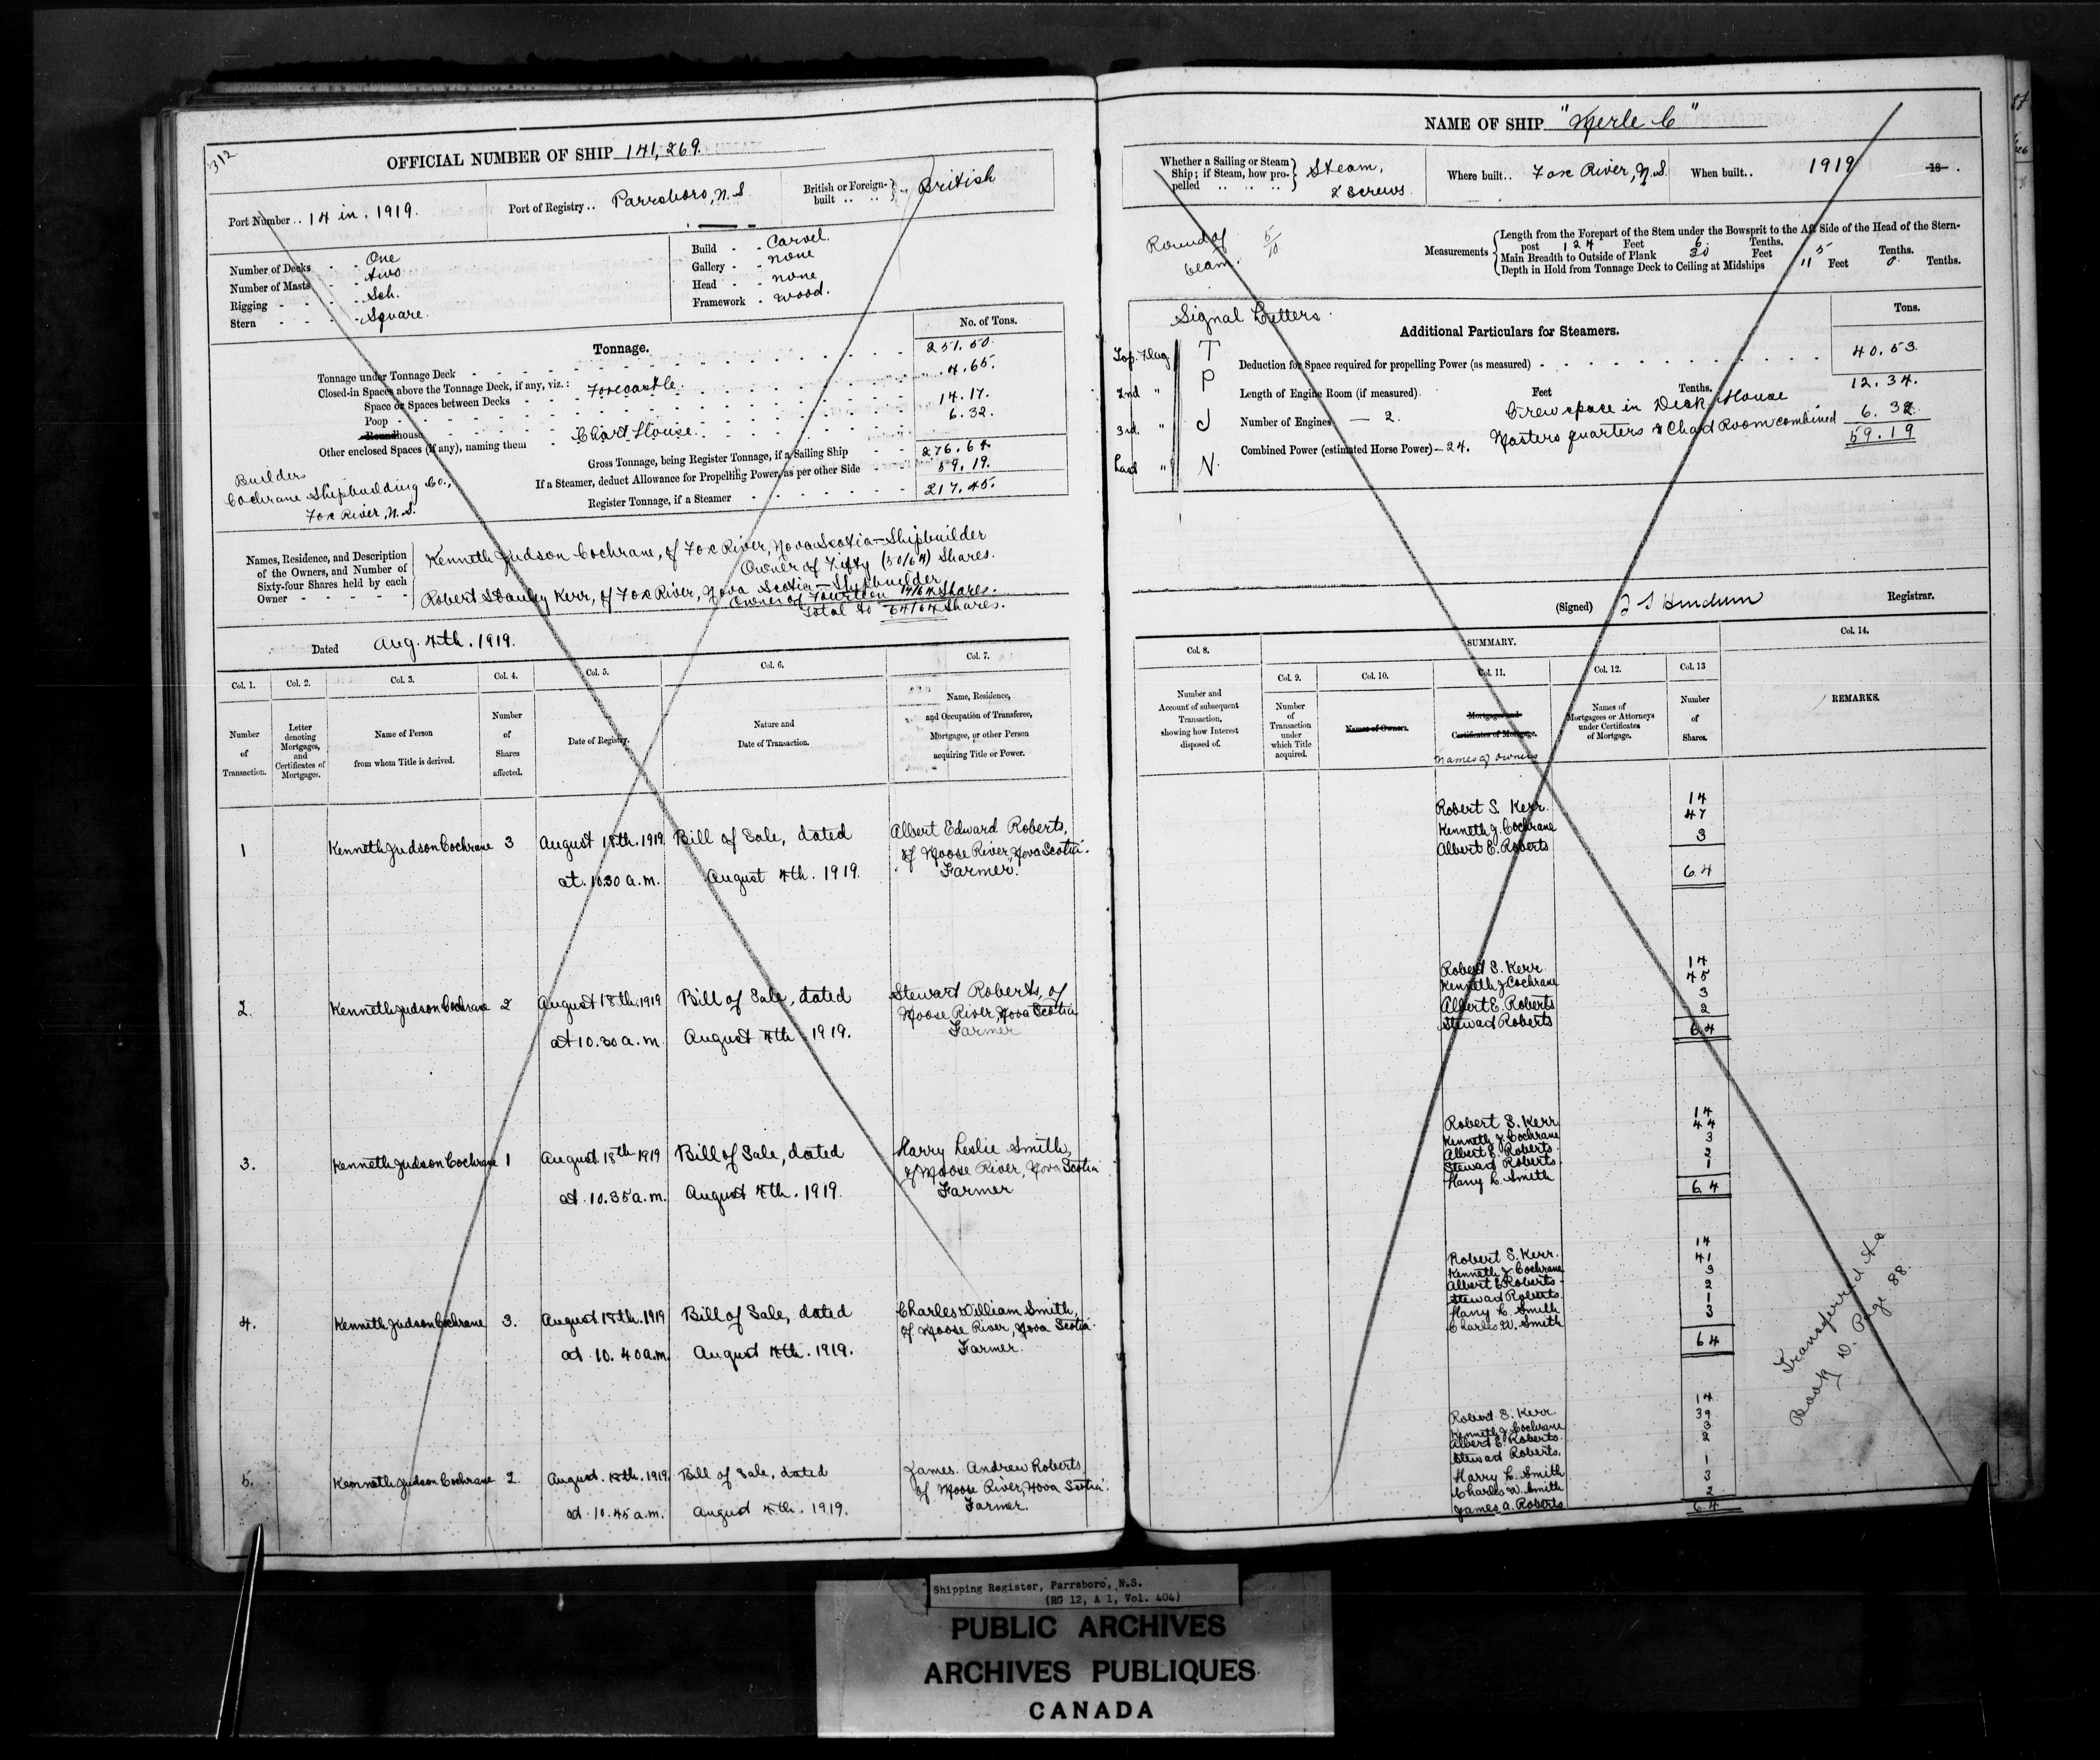 312
OFFICIAL NUMBER OF SHIP 141,269.
Port Number .. 14 in. 1919.
Port of Registry .. Parrsboro, N.S.
British or Foreign-built .. .. British
Number of Decks - - One
Number of Masts - - Two
Rigging - - - - Sch.
Stern - - - - Square.
Build - - Carvel.
Gallery - - none
Head - - none
Framework - wood.
Tonnage.
No. of Tons.
Tonnage under Tonnage Deck 251.50
Closed-in Spaces above the Tonnage Deck, if any, viz.:
Space or Spaces between Decks Forecastle. 4.65.
Poop 14.17.
Roundhouse
Other enclosed Spaces (if any), naming them - Chart House. 6.32.
Gross Tonnage, being Register Tonnage, if a Sailing Ship 276.64
If a Steamer, deduct Allowance for Propelling Power, as per other Side 59.19.
Register Tonnage, if a Steamer 217.45.
Builders
Cochrane Shipbuilding Co.,
Fox River, N.S.
Names, Residence, and Description of the Owners, and Number of Sixty-four Shares held by each Owner
Kenneth Judson Cochrane, of Fox River, Nova Scotia - Shipbuilder
Owner of Fifty (50/64) Shares.
Robert Stanley Kerr, of Fox River, Nova Scotia - Shipbuilder
Owner of Fourteen 14/64 Shares.
Total to 64/64 Shares.
Dated Aug. 4th. 1919.
Col. 1.
Col. 2.
Col. 3.
Col. 4.
Col. 5.
Col. 6.
Col. 7.
Number of Transaction.
Letter denoting Mortgages, and Certificates of Mortgages.
Name of Person from whom Title is derived.
Number of Shares affected.
Date of Registry.
Nature and Date of Transaction.
Name, Residence, and Occupation of Transferee, Mortgagee, or other Person acquiring Title or Power.
1 Kenneth Judson Cochrane 3 August 18th. 1919 Bill of Sale, dated Albert Edward Roberts,
of Moose River, Nova Scotia.
at 10.30 a.m. August 4th. 1919. Farmer.
2. Kenneth Judson Cochrane 2 August 18th. 1919 Bill of Sale, dated Stewart Roberts, of
Moose River, Nova Scotia
at 10.30 a.m. August 4th. 1919. Farmer
3. Kenneth Judson Cochrane 1 August 18th 1919 Bill of Sale, dated Harry Leslie Smith,
of Moose River, Nova Scotia
at 10.35 a.m. August 4th. 1919. Farmer
4. Kenneth Judson Cochrane 3. August 18th. 1919 Bill of Sale, dated Charles William Smith,
of Moose River, Nova Scotia.
at 10.40 a.m. August 4th. 1919. Farmer.
5. Kenneth Judson Cochrane 2. August 18th. 1919. Bill of Sale, dated James Andrew Roberts
of Moose River, Nova Scotia.
at 10.45 a.m. August 4th. 1919. Farmer.
NAME OF SHIP "Merle C"
Whether a Sailing or Steam Ship; if Steam, how propelled .. .. .. Steam,
2 Screws.
Where built.. Fox River, N.S.
When built.. 1919 18 .
Round of beam. 5/10
Measurements
Length from the Forepart of the Stem under the Bowsprit to the Aft Side of the Head of the Stern-
post 124 Feet 6. Tenths.
Main Breadth to Outside of Plank 30 Feet 5 Tenths.
Depth in Hold from Tonnage Deck to Ceiling at Midships 11 Feet 0 Tenths.
Signal Letters.
Top Flag T
2nd " P
3rd. " J
Last " N.
Additional Particulars for Steamers.
Tons.
Deduction for Space required for propelling Power (as measured) 40.53
Length of Engine Room (if measured). Feet Tenths.
Number of Engines - 2.
Crew space in Deck House 12.34.
Combined Power (estimated Horse Power) - 24.
Masters quarters & Chart Room combined 6.32
59.19
(Signed) Registrar.
Col. 8.
SUMMARY.
Col. 9.
Col. 10.
Col. 11.
Col. 12.
Col. 13
Col. 14.
Number and Account of subsequent Transaction, showing how Interest disposed of.
Number of Transaction under which Title acquired.
Names of Owners.
Mortgages and Certificates of Mortgage.
names of owners
Names of Mortgagees or Attorneys under Certificates of Mortgage.
Number of Shares.
REMARKS.
Robert S. Kerr. 14
Kenneth J. Cochrane 47
Albert E. Roberts 3
64
Robert S. Kerr 14
Kenneth J. Cochrane 45
Albert E. Roberts 3
Stewart Roberts 2
64
Robert S. Kerr 14
Kenneth J. Cochrane 44
Albert E. Roberts 3
Stewart Roberts 2
Harry L. Smith 1
64
Robert S. Kerr. 14
Kenneth J. Cochrane 41
Albert E. Roberts 3
Stewart Roberts. 2
Harry L. Smith 1
Charles W. Smith 3
64
Robert S. Kerr. 14
Kenneth J. Cochrane 39
Albert E. Roberts. 3
Stewart Roberts. 2
Harry L. Smith 1
Charles W. Smith 3
James A. Roberts 2
64
Transferred to
Book D. Page 88.
Shipping Register, Parrsboro, N.S.
(RG 12, A 1, Vol. 404)
PUBLIC ARCHIVES
ARCHIVES PUBLIQUES
CANADA